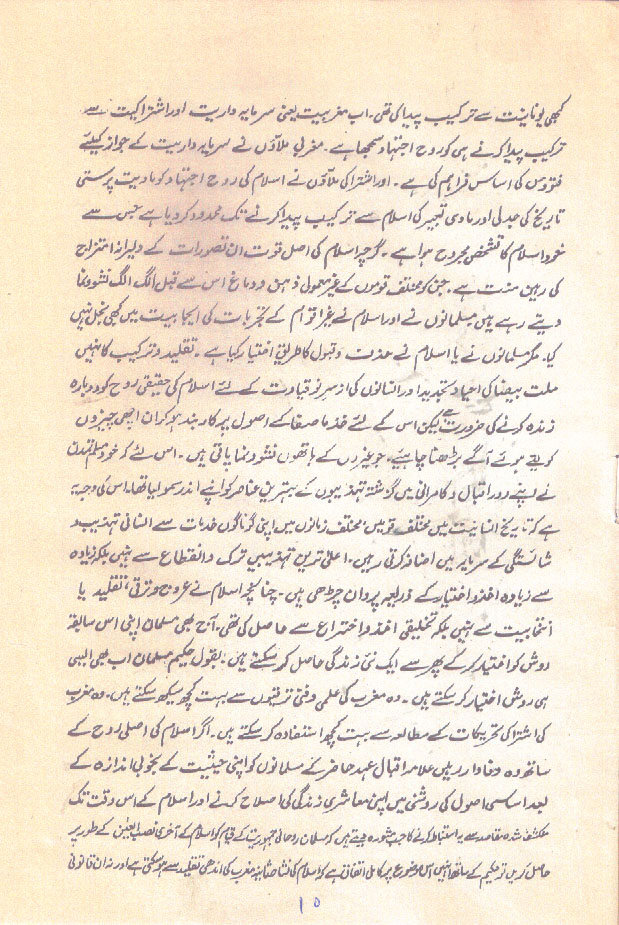 کبھی یونانیت سے ترکیب پیدا کی تھی۔ اب مغربیت یعنی سرمایہ داریت اور اشتراکیت سے
ترکیب پیدا کرنے ہی کو روح اجتہاد سمجھا ہے۔ مغربی ملاؤں نے سرمایہ داریت کے جواز کیلئے
فتووں کی اساس فراہم کی ہے۔ اور اشتراکی ملاؤں نے اسلام کی روح اجتہاد کو مادیت پرستی
تاریخ کی جدلی اور مادی تعبیر کی اسلام سے ترکیب پیدا کرنے تک محدود کر دیا ہے جس سے
خود اسلام کا تشخص مجروح ہوا ہے۔ گرچہ اسلام کی اصل قوت ان تصورات کے دلیرانہ امتزاج
کی رہین منت ہے۔ جن کو مختلف قوموں کے غیر معمولی ذہن و دماغ اس سے قبل الگ الگ نشوونما
دیتے رہے ہیں مسلمانوں نے اور اسلام نے غیر اقوام کے تجربات کی ایجابیت میں کبھی بخل نہیں
کیا۔ مگر مسلمانوں نے یا اسلام نے جذب و قبول کا طریق اختیار کیا ہے۔ تقلید و ترکیب کا نہیں
ملت بیضا کی احیاء و تجدید اور انسانوں کی از سر نو قیادت کے لئے اسلام کی حقیقی روح کو دوبارہ
زندہ کرنے کی ضرورت ہے لیکن اس کے لئے خذ ما صفا کے اصول پر کاربند ہو کر ان اچھی چیزوں
کو لیتے ہوئے آگے بڑھنا چاہیئے۔ جو غیروں کے ہاتھوں نشوونما پاتی ہیں۔ اس لئے کہ خود مسلم تمدن
نے اپنے دور اقبال و کامرانی میں گزشتہ تہذیبوں کے بہترین عناصر کو اپنے اندر سمو لیا تھا۔ اس کی وجہ یہ
ہے کہ تاریخ انسانیت میں مختلف قومیں، مختلف زمانوں میں اپنی گوناگوں خدمات سے انسانی تہذیب و
شائستگی کے سرمایہ میں اضافہ کرتی رہیں۔ اعلیٰ ترین تہذیبیں ترک و انقطاع سے نہیں بلکہ زیادہ
سے زیادہ اخذ و اختیار کے ذریعہ پروان چڑھی ہیں۔ چنانچہ اسلام نے عروج و ترقی، تقلید یا
انتخابیت سے نہیں بلکہ تخلیقی اخذ و اختراع سے حاصل کی تھی۔ آج بھی مسلمان اپنی اس سابقہ
روش کو اختیار کر کے پھر سے ایک نئی زندگی حاصل کر سکتے ہیں۔ بقول حکیم مسلمان اب بھی ایسی
ہی روش اختیار کر سکتے ہیں۔ وہ مغرب کی علمی و فنی ترقیوں سے بہت کچھ سیکھ سکتے ہیں۔ وہ مغرب
کی اشتراکی تحریکات کے مطالعہ سے بہت کچھ استفادہ کر سکتے ہیں۔ اگر اسلام کی اصلی روح کے
ساتھ وہ وفادار رہیں علامہ اقبال عہد حاضر کے مسلمانوں کو اپنی حیثیت کے بخوبی اندازہ کے
بعد اساسی اصول کی روشنی میں اپنی معاشری زندگی کی اصلاح کرنے اور اسلام کے اس وقت تک
منکشف شدہ مقاصد سے یہ استنباط کرنے کا جب مشورہ دیتے ہیں کہ مسلمان روحانی جمہوریت کے قیام کو اسلام کے آخری نصب العین کے طور پر
حاصل کریں تو حکیم کے ساتھ انہیں اس موضوع پر کامل اتفاق ہے کہ اسلام کی نشاۃ ثانیہ مغرب کی اندھی تقلید سے ہو سکتی ہے اور نہ ان قانونی
۱۵